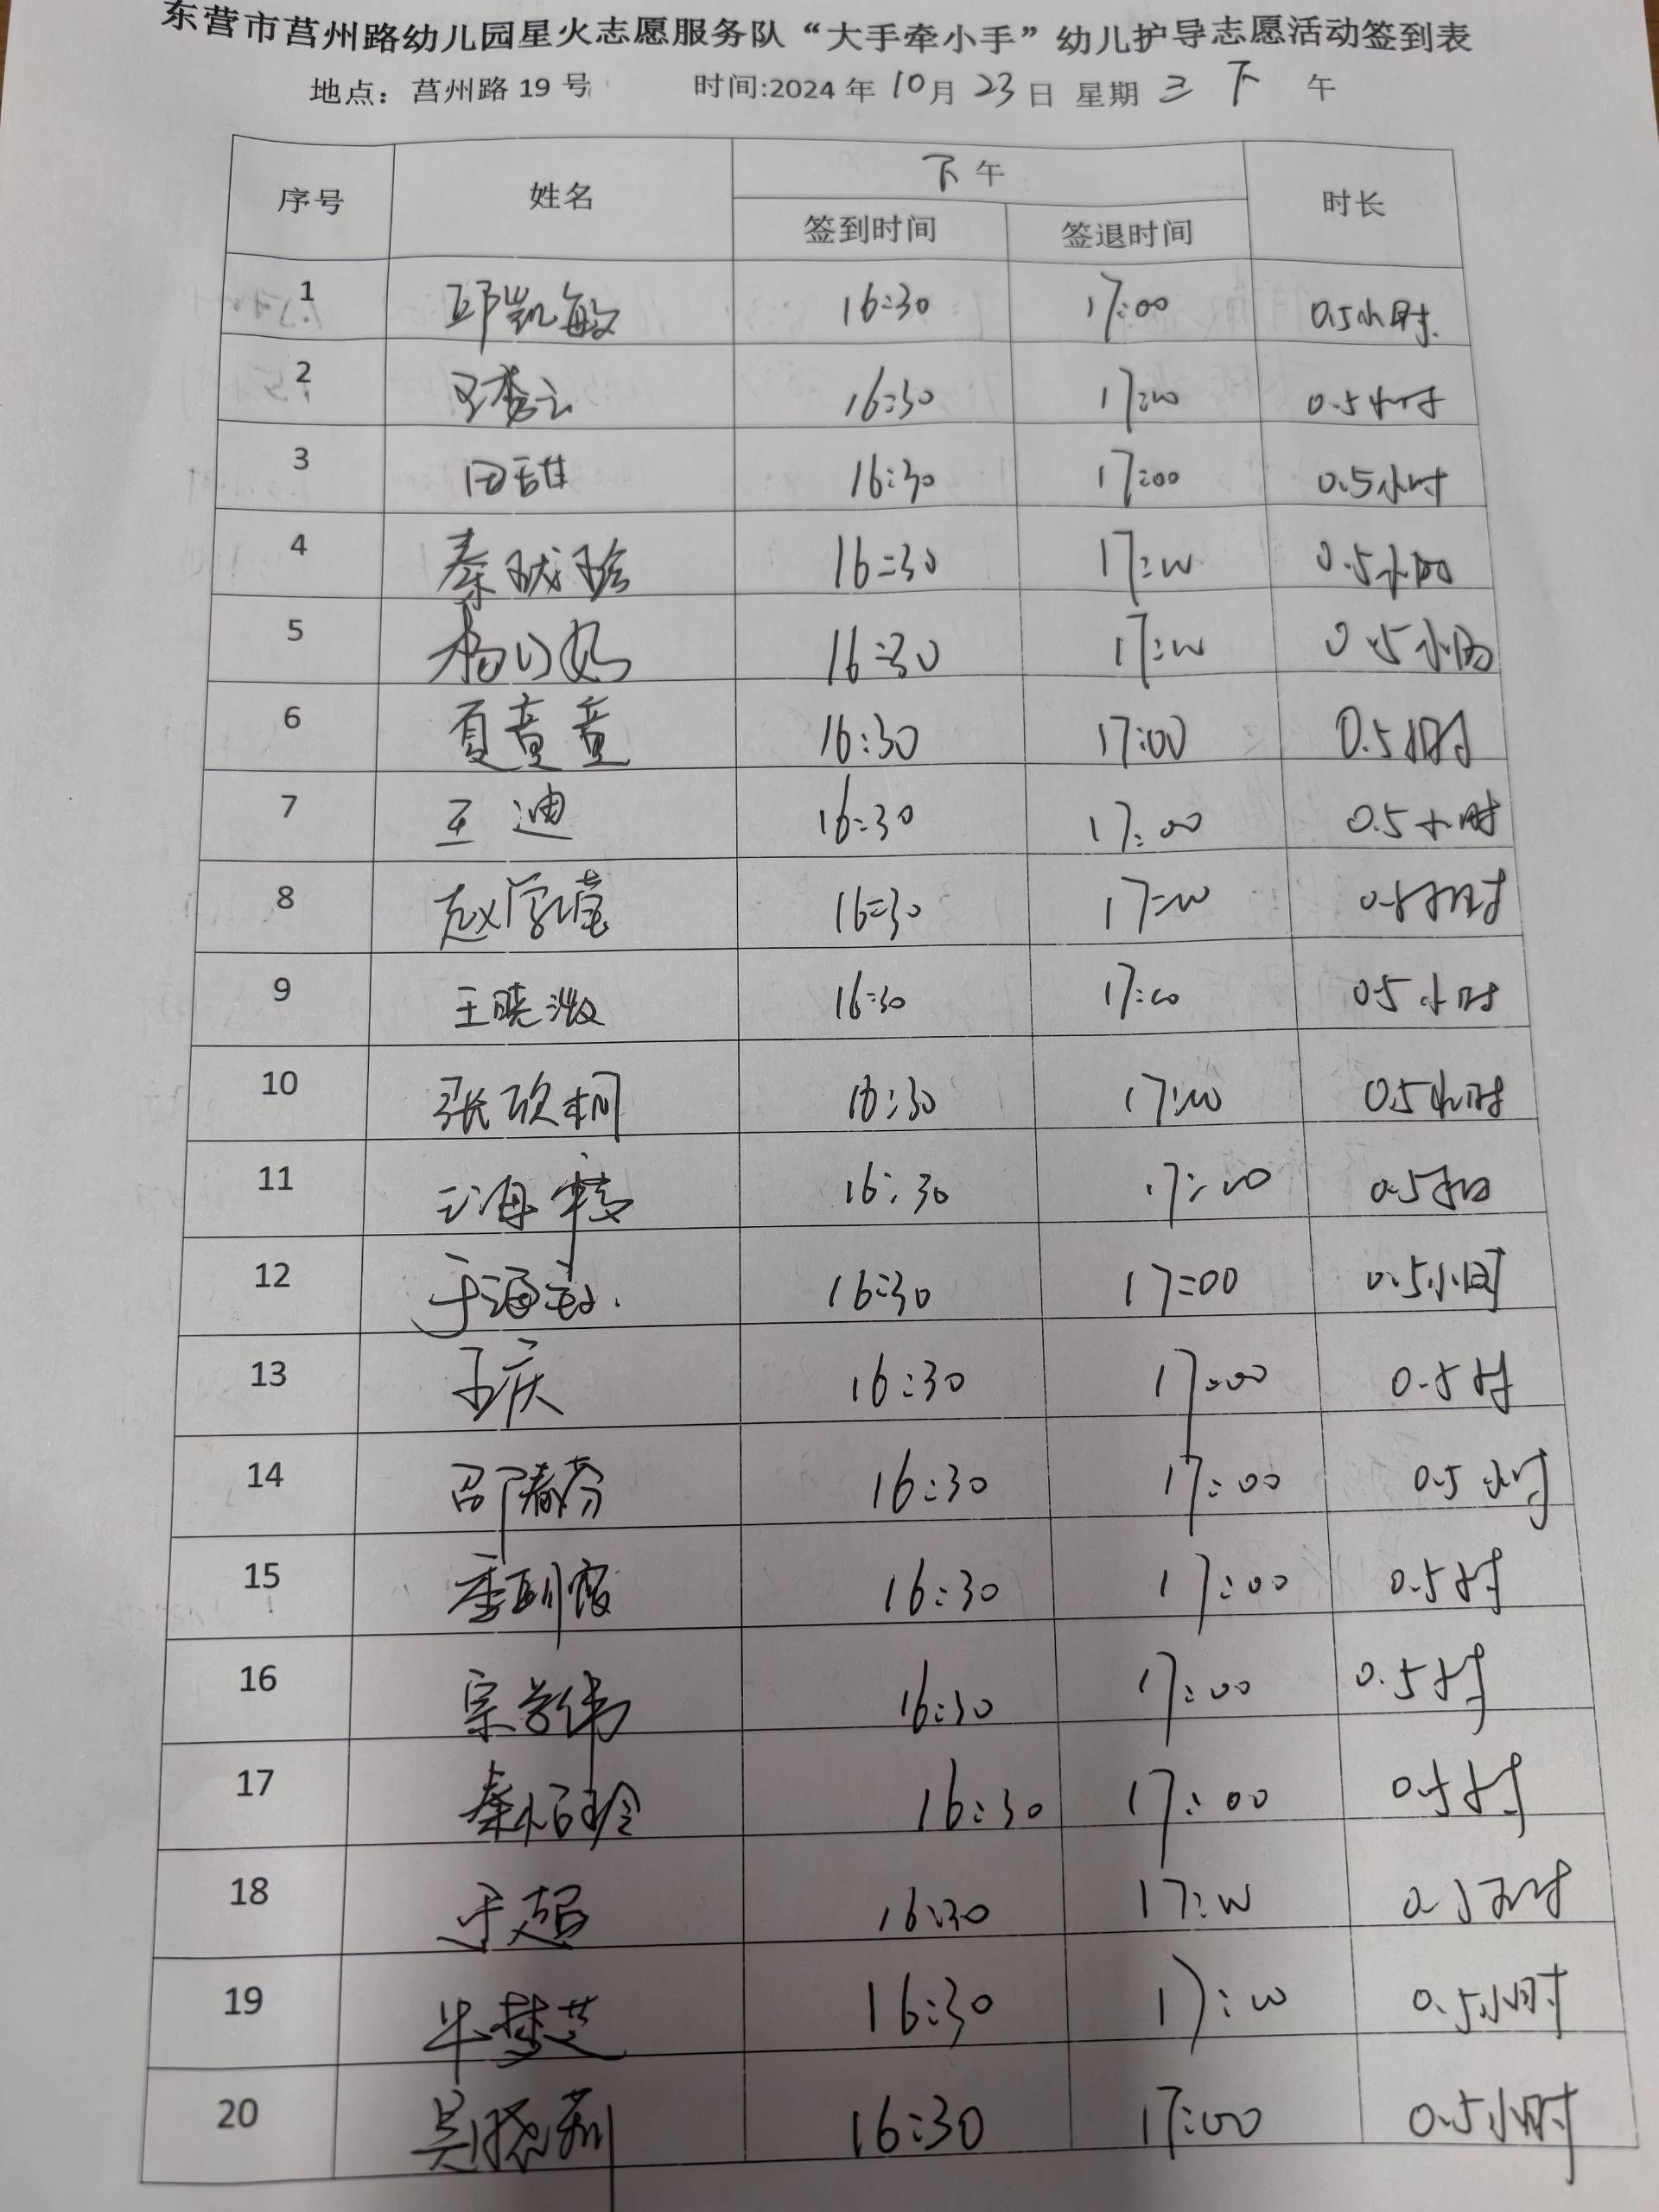 东营市莒州路幼儿园星火志愿服务队“大手牵小手”幼儿护导志愿活动签到表
地点：莒州路 19 号 时间:2024 年 10 月 23 日 星期 三 下 午
序号 姓名 下午 时长
签到时间 签退时间
1 邱凯敏 16:30 17:00 0.5小时.
2 王秀云 16:30 17:00 0.5小时
3 田甜 16:30 17:00 0.5小时
4 秦 16:30 17:00 0.5小时
5 杨 16:30 17:00 0.5小时
6 夏童童 16:30 17:00 0.5小时
7 王迪 16:30 17:00 0.5小时
8 赵学莹 16:30 17:00 0.5小时
9 王晓 16:30 17:00 0.5小时
10 张欣桐 16:30 17:00 0.5小时
11 海 16:30 17:00 0.5小时
12 于海 16:30 17:00 0.5小时
13 庆 16:30 17:00 0.5时
14 邵春芬 16:30 17:00 0.5小时
15 季 16:30 17:00 0.5时
16 宗学伟 16:30 17:00 0.5时
17 秦 16:30 17:00 0.5时
18 于超 16:30 17:00 0.5小时
19 牛梦芝 16:30 17:00 0.5小时
20 吴晓莉 16:30 17:00 0.5小时